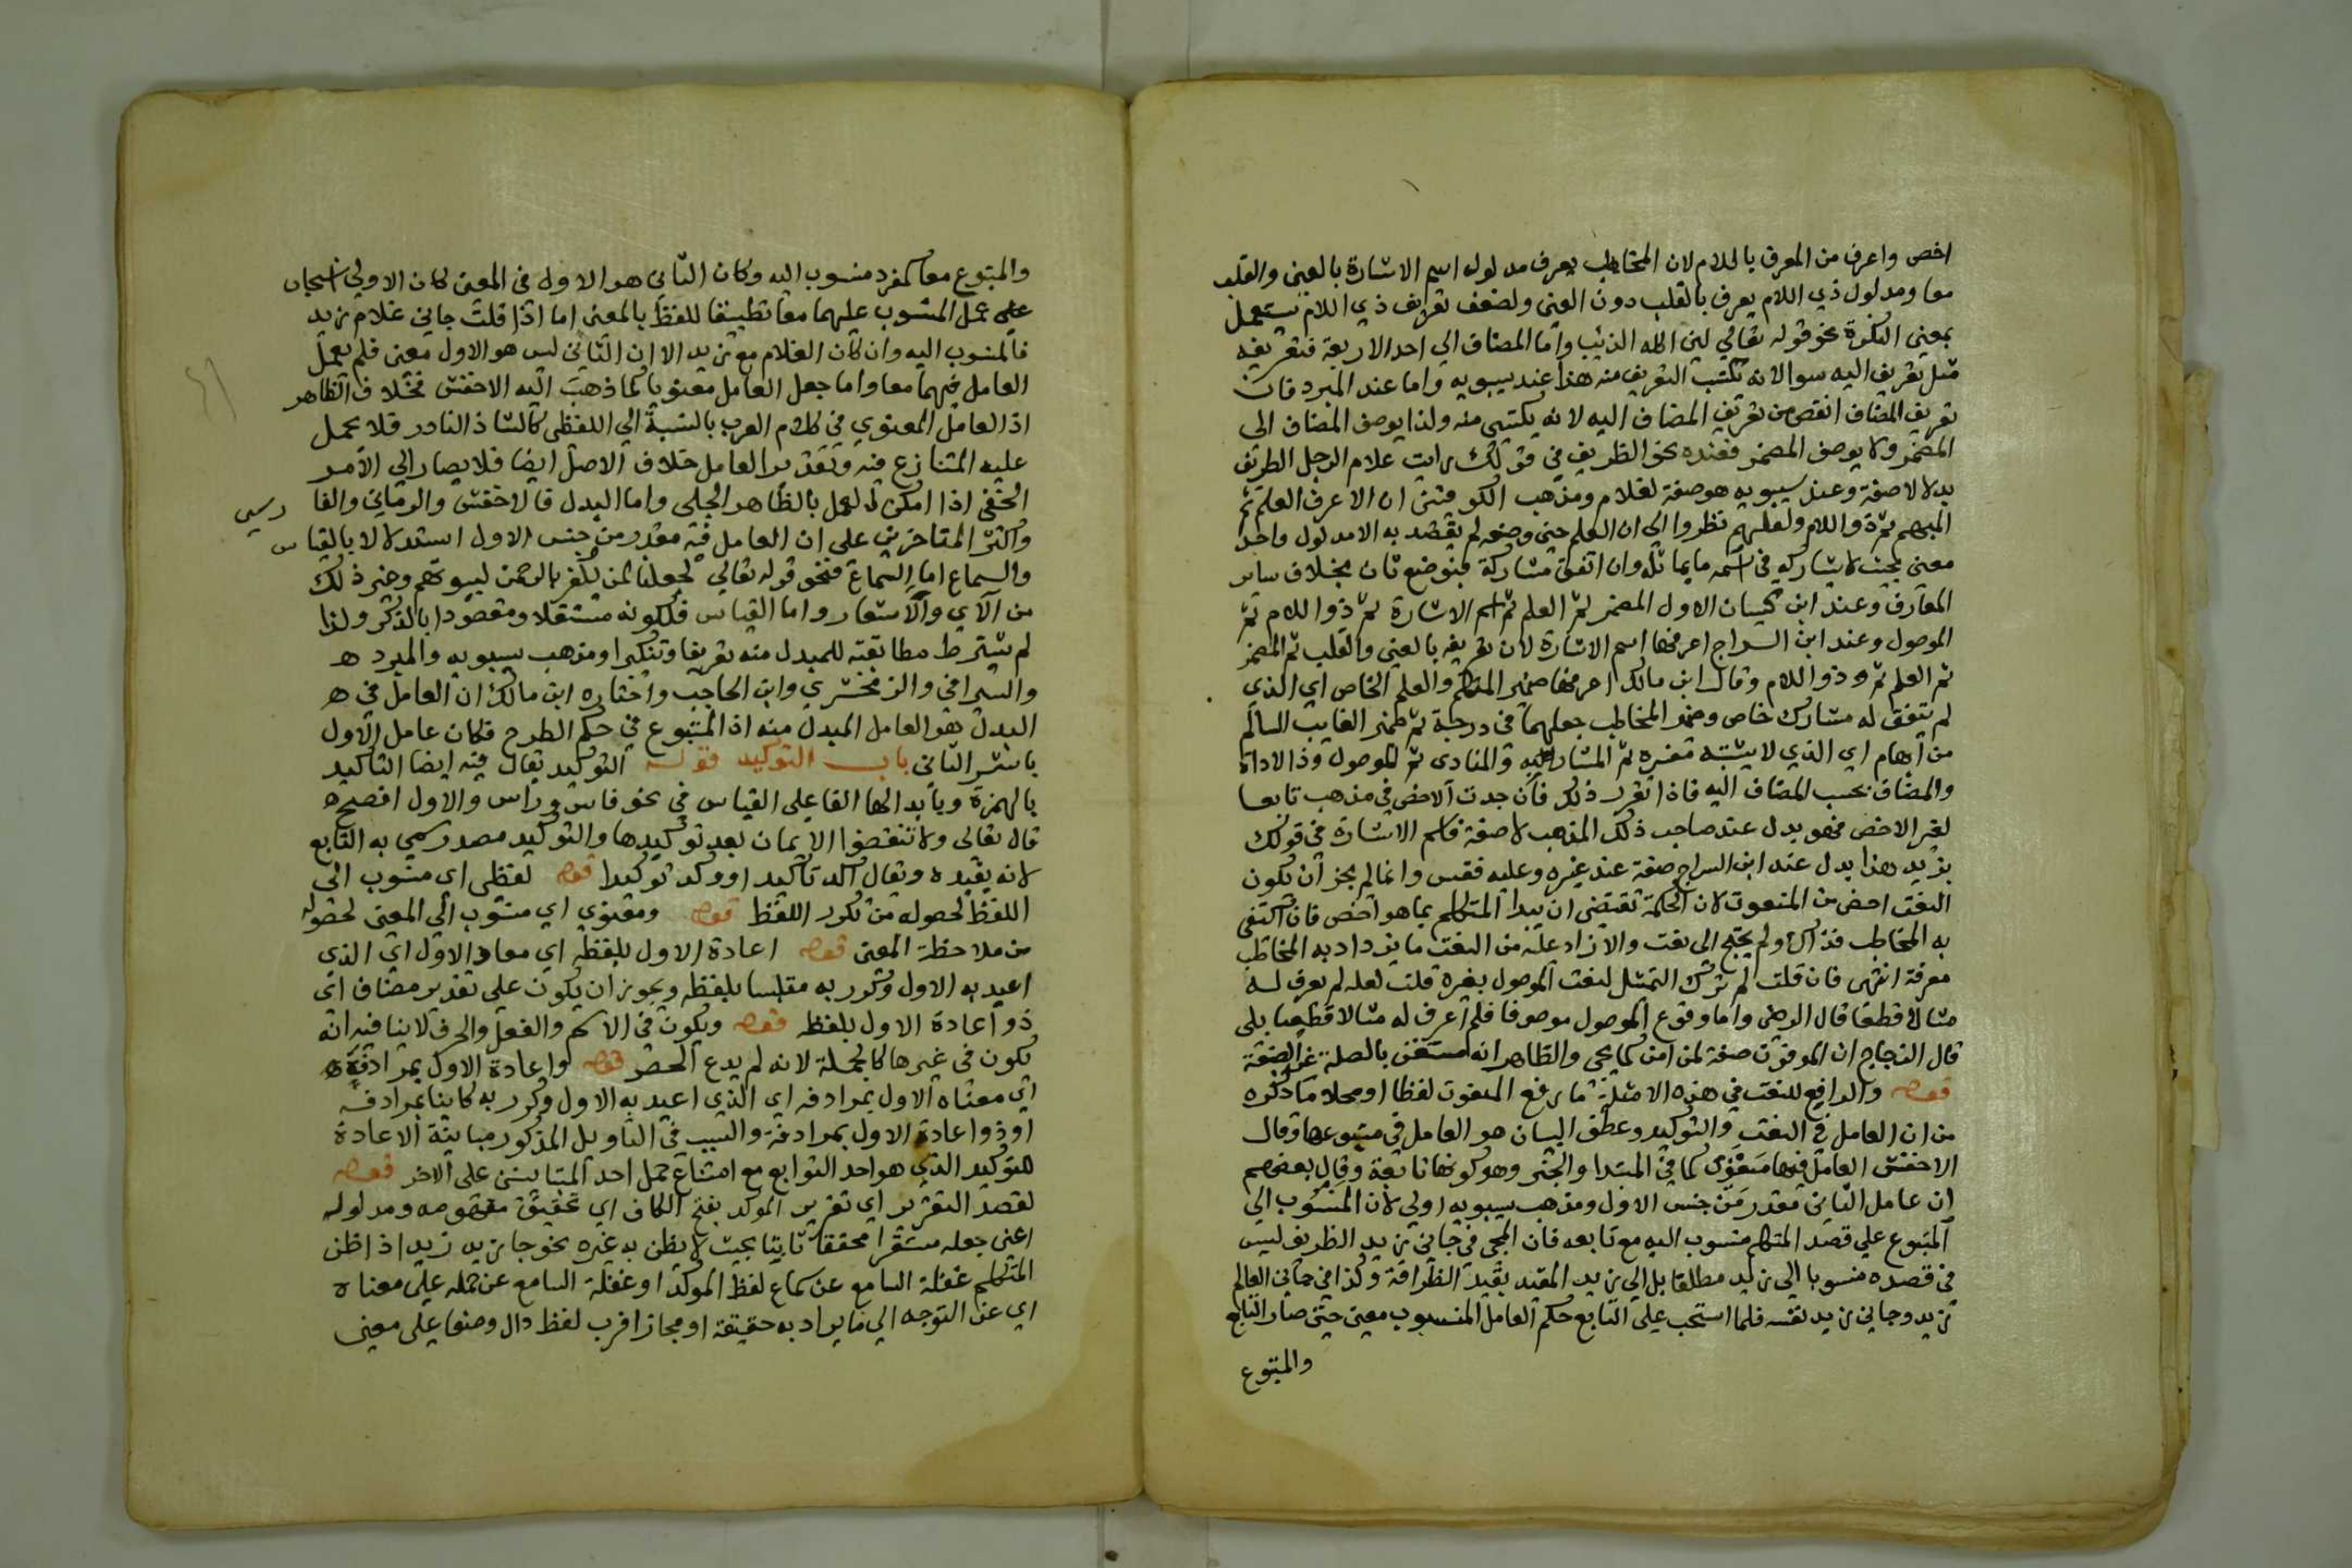 اخص واعرف من المعرف باللام لان المخاطب يعرف مدلول اسم الاشارة بالعين والقلب
معا ومدلول ذي اللام يعرف بالقلب دون العين ولضعف تعريف ذي اللام يستعمل
بمعنى النكرة نحو قوله تعالي لئن اكله الذئب واما المضاف الي احد الاربعة فتعريفه
مثل تعريف اليه سوا لانه يكتسب التعريف منه هذا عند سيبويه واما عند المبرد فان
تعريف المضاف انقص من تعريف المضاف اليه لانه يكتسي منه ولذا يوصف المضاف الى
المضمر ولا يوصف المضمر فعنده نحو الظريف في قولك رايت غلام الرجل الظريف
بدلا لا صفة وعند سيبويه هو صفة لغلام ومذهب الكوفيين ان الاعرف العلم ثم
المبهم ثم ذو اللام ولعلهم نظروا الي ان العلم حين وضعه لم يقصد به الا مدلول واحد
معين بحيث لا يشاركه في اسمه ما يماثله وان اتفق مشاركة فبوضع ثان بخلاف ساير
المعارف وعند ابن كيسان الاول المضمر ثم العلم ثم اسم الاشارة ثم ذو اللام ثم
الموصول وعند ابن السراج اعرفها اسم الاشارة لان تعريفه بالعين والقلب ثم المضمر
ثم العلم ثم ذو اللام وقال ابن مالك اعرفها ضمير المتكلم والعلم الخاص اي الذي
لم يتفق له مشارك خاص وضمير المخاطب جعلهما في درجة ثم ضمير الغايب السالم
من ابهام اي الذي لا يشتبه مفسره ثم المشار به والمنادى ثم الموصول وذا الاداة
والمضاف بحسب المضاف اليه فاذا تقرر ذلك فان وجدت الاخص في مذهب تابعا
لغير الاخص فهو بدل عند صاحب ذلك المذهب لا صفة فاسم الاشارة في قولك
بزيد هذا بدل عند ابن السراج صفة عند غيره وعليه فقس وانما لم يجز ان يكون
النعت اخص من المنعوت لان الحكمة تقتضي ان يبدا المتكلم بما هو اخص فان اكتفي
به المخاطب فذاك ولم يحتج الى نعت والا زاد عليه من النعت ما يزداد به المخاطب
معرفة انتهى فان قلت لم ترك التمثيل لنعت الموصول بغيره قلت لعله لم يعرف له
مثالا قطعا قال الرضى واما وقوع الموصول موصوفا فلم اعرف له مثالا قطعيا بلى
قال الزجاج ان الموفون صفة لمن امن كما يجي والظاهر انه مستغن بالصلة عن الصفة
قوله والرافع للنعت في هذه الامثلة ما رفع المنعوت لفظا او محلا ما ذكره
من ان العامل في النعت والتوكيد وعطف البيان هو العامل في متبوعها وقال
الاخفش العامل فيها معنوى كما في المبتدا والخبر وهو كونها تابعة وقال بعضهم
ان عامل الثاني مقدر من جنس الاول ومذهب سيبويه اولى لان المنسوب الي
المتبوع علي قصد المتكلم منسوب اليه مع تابعه فان المجي في جاني زيد الظريف ليس
في قصده منسوبا الى زيد مطلقا بل الي زيد المقيد بقيد الظرافة وكذا في جاني العالم
زيد وجاني زيد نفسه فلما انسحب على التابع حكم العامل المنسوب معنى حتى صار التابع
والمتبوع
والمتبوع معا كمفرد منسوب اليه وكان الثاني هو الاول في المعنى كان الاولى انسحاب
على عمل المنسوب عليهما معا تطبيقا للفظ بالمعنى اما اذا قلت جاني غلام زيد
فالمنسوب اليه وان كان الغلام مع زيد الا ان الثاني ليس هو الاول معنى فلم يعمل
العامل فيهما معا واما جعل العامل معنويا كما ذهب اليه الاخفش فخلاف الظاهر
اذ العامل المعنوي في كلام العرب بالنسبة الى اللفظى كالشاذ النادر فلا يحمل
عليه المتنازع فيه وتقدير العامل خلاف الاصل ايضا فلا يصار الي الامر
الخفي اذا امكن العمل بالظاهر الجلى واما البدل فالاخفش والرماني والفا رسي
واكثر المتاخرين على ان العامل فيه مقدر من جنس الاول استدلالا بالقياس
والسماع اما السماع فنحو قوله تعالي لجعلنا لمن يكفر بالرحمن لبيوتهم وغير ذلك
من الاي والاشعار واما القياس فلكونه مستقلا ومقصودا بالذكر ولذا
لم يشترط مطابقته للمبدل منه تعريفا وتنكيرا ومذهب سيبويه والمبرد ه
والسيرافي والزمخشري وابن الحاجب واختاره ابن مالك ان العامل في ه
البدل هو العامل المبدل منه اذ المتبوع في حكم الطرح فكان عامل الاول
باشر الثاني باب التوكيد قوله التوكيد يقال فيه ايضا التاكيد
بالهمزة وبابدالها الفا على القياس في نحو فاس وراس والاول افصح ه
قال تعالى ولا تنقضوا الايمان بعد توكيدها والتوكيد مصدر سمي به التابع
لانه يفيده ويقال اكد تاكيدا ووكد توكيدا قوله لفظى اي منسوب الى
اللفظ لحصوله من تكرر اللفظ قوله ومعنوي اي منسوب الي المعنى لحصوله
من ملاحظة المعنى قوله اعادة الاول بلفظه اي معاد الاول اي الذي
اعيد به الاول وكرر به متلبسا بلفظه ويجوز ان يكون علي تقدير مضاف اي
ذو اعادة الاول بلفظه قوله ويكون في الاسم والفعل والحرف لا ينافيه انه
يكون في غيرها كالجملة لانه لم يدع الحصر قوله واعادة الاول بمرادفه ه
اي معناه الاول بمرادفه اي الذي اعيد به الاول وكرر به كاينا بمرادفه
او ذو اعادة الاول بمرادفه والسبب في التاويل المذكور مباينة الاعادة
للتوكيد الذي هو احد التوابع مع امتناع حمل احد المتباينين على الاخر قوله
لقصد التقرير اي تقرير الموكد بفتح الكاف اي تحقيق مفهومه ومدلوله
اعني جعله مستقرا محققا ثابتا بحيث لا يظن به غيره نحو جا زيد زيد اذا ظن
المتكلم غفلة السامع عن سماع لفظ الموكد او غفلة السامع عن حمله على معناه
اي عن التوجه الي ما يراد به حقيقة او مجازا فرب لفظ دال وضعا على معنى